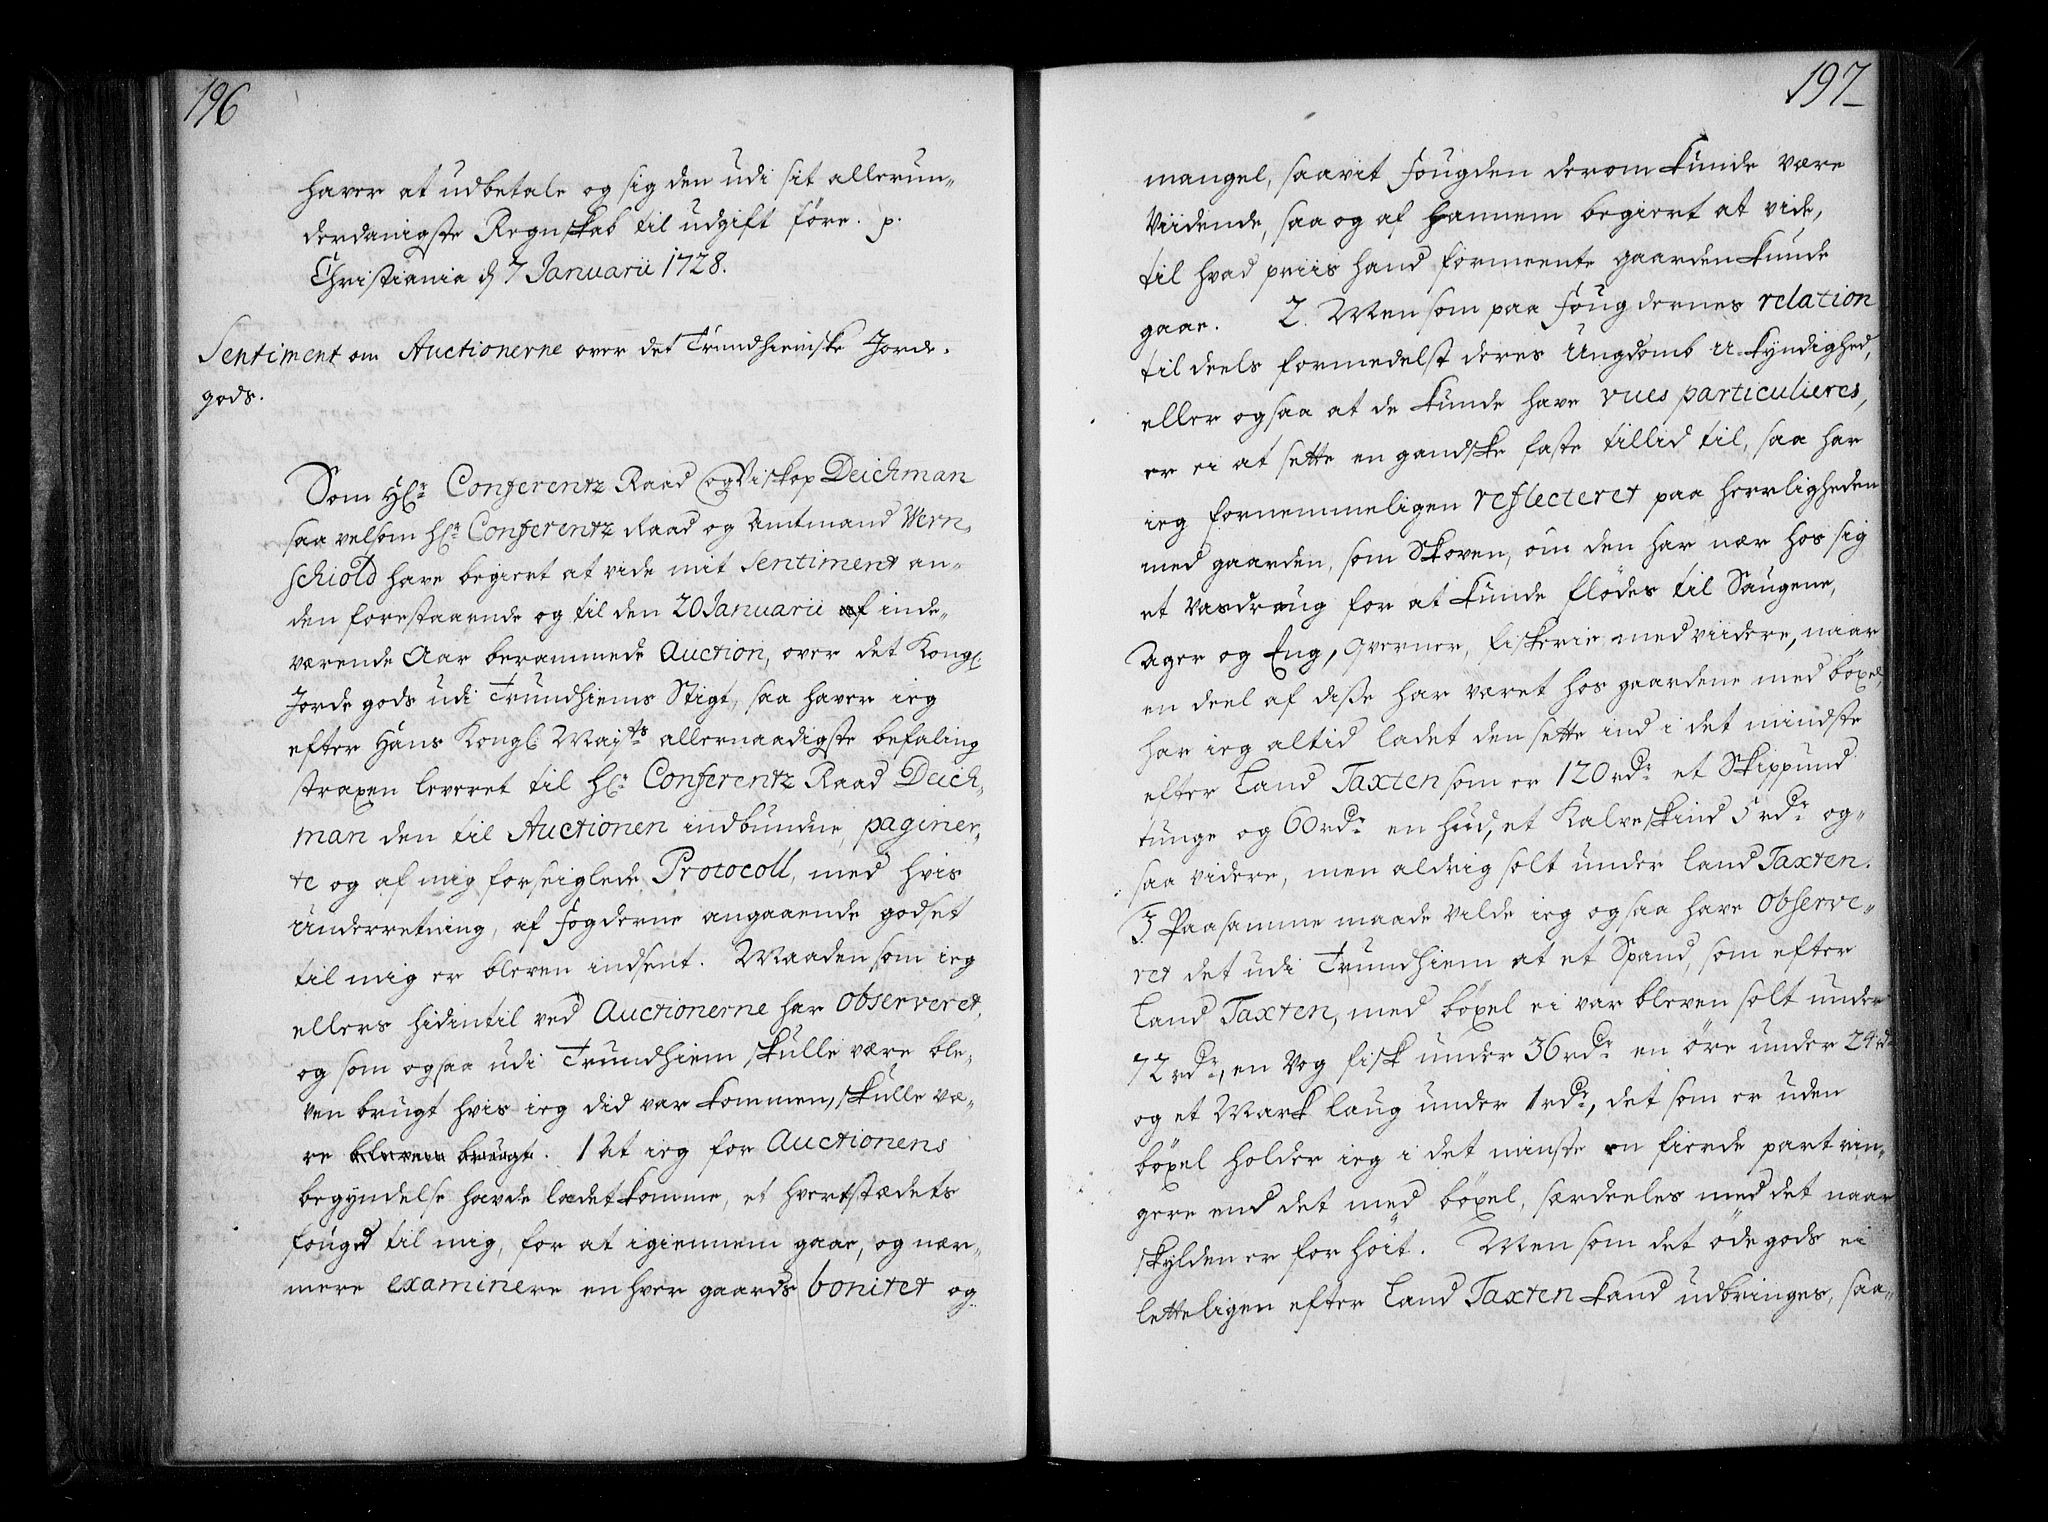 196
haver at udbetale og sig den udi sit allerun-
derdanigste Regnskab til udgift före. p.
Christiania d 7 Januarii 1728.
Sentiment om Auctionerne over det Trundhiemske Jorde-
gods.
Som Hr. Conferentz Raad og Biskop Deichman
saa velsom Hr. Conferentz Raad og Amtmand Vern-
schiold have begieret at vide mit Sentiment an-
den forestaaende og til den 20 Januarii af inde-
værende Aar berammede Auction, over det Kongl
Jorde gods udi Trundhiems Stigt, saa haver ieg
efter Hans Kongl Mayts allernaadigste befaling
straxen leveret til Hr. Conferentz Raad Deich-
man den til Auctionen indbundne, paginer-
te og af mig forseiglede Protocoll, med hvis
Underretning, af fogderne angaaende godset
til mig er bleven indsent. Maaden som ieg
ellers hidintil ved Auctionerne har observeret,
og som ogsaa udi Trundhiem skulle være ble-
ven brugt hvis ieg did var kommen, skulle væ-
re bleven brugt. 1 At ieg for Auctionens
begyndelse havde ladet komme, et hvert stædets
fouged til mig, for at igiennem gaae, og nær-
mere examinere en hver gaards bonitet og
197
mangel, saavit fougden derom kunde være
Viidende, saa og af hannem begiert at vide,
til hvad priis hand formeente gaarden kunde
gaae. 2. Men som paa fougdernes relation
til deels formedelst deres Ungdomb u-kyndighed,
eller ogsaa at de kunde have vues particulieres,
er ei at sette en gandske faste tillid til, saa har
ieg fornemmeligen reflecteret paa herligheden
med gaarden, som Skoven, om den har nær hos sig
et Vasdraug for at kunde flödes til Saugene,
Ager og Eng, Qverner, fiskerie med viidere, naar
en deel af disse har været hos gaardene med böxel,
har ieg altid ladet den sette ind i det mindste
efter Land Taxten som er 120 rdr et Skippund
tunge og 60 rdr en hud, et Kalveskind 5 rdr og-
saa videre, men aldrig solt under land Taxten.
3 Paa samme maade vilde ieg ogsaa have observe-
ret det udi Trundhiem at et Spand, som efter
Land Taxten, med böxel ei var bleven solt under
72 rdr, en Vog fisk under 36 rdr en öre under 24 rdr
og et Mark laug under 1 rdr, det som er uden
böxel holder ieg i det minste en fierde part rin-
gere end det med böxel, særdeeles med det naar
skylden er for höit. Men som det öde gods ei
letteligen efter Land Taxten kand udbringes, saa-